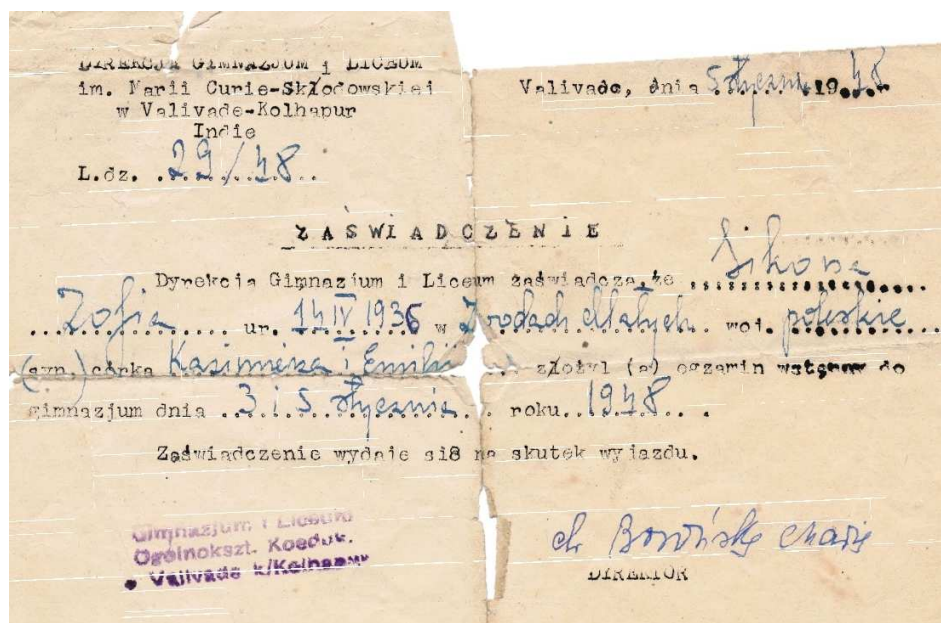 DIREKCJA GIMNAZJUM i LICEUM
im. Marii Curie-Skłodowskiej
w Valivade-Kolhapur
Indie
L.dz. 29/48
Valivade, dnia 5 stycznia 1948
ZAŚWIADCZENIE
Dyrekcja Gimnazjum i Liceum zaświadcza, że Sikora
Zofia ur. 14 IV 1936 w Małych woi. poleskie
(syn.) córka Kazimierza i Emilii złożył (a) egzamin wstępny do
gimnazjum dnia 3 i 5 stycznia roku 1948.
Zaświadczenie wydaje si8 na skutek wyjazdu.
Gimnazjum i Liceum
Ogólnokszt. Koeduk.
Valivade k/Kolhapur
DIREKTOR